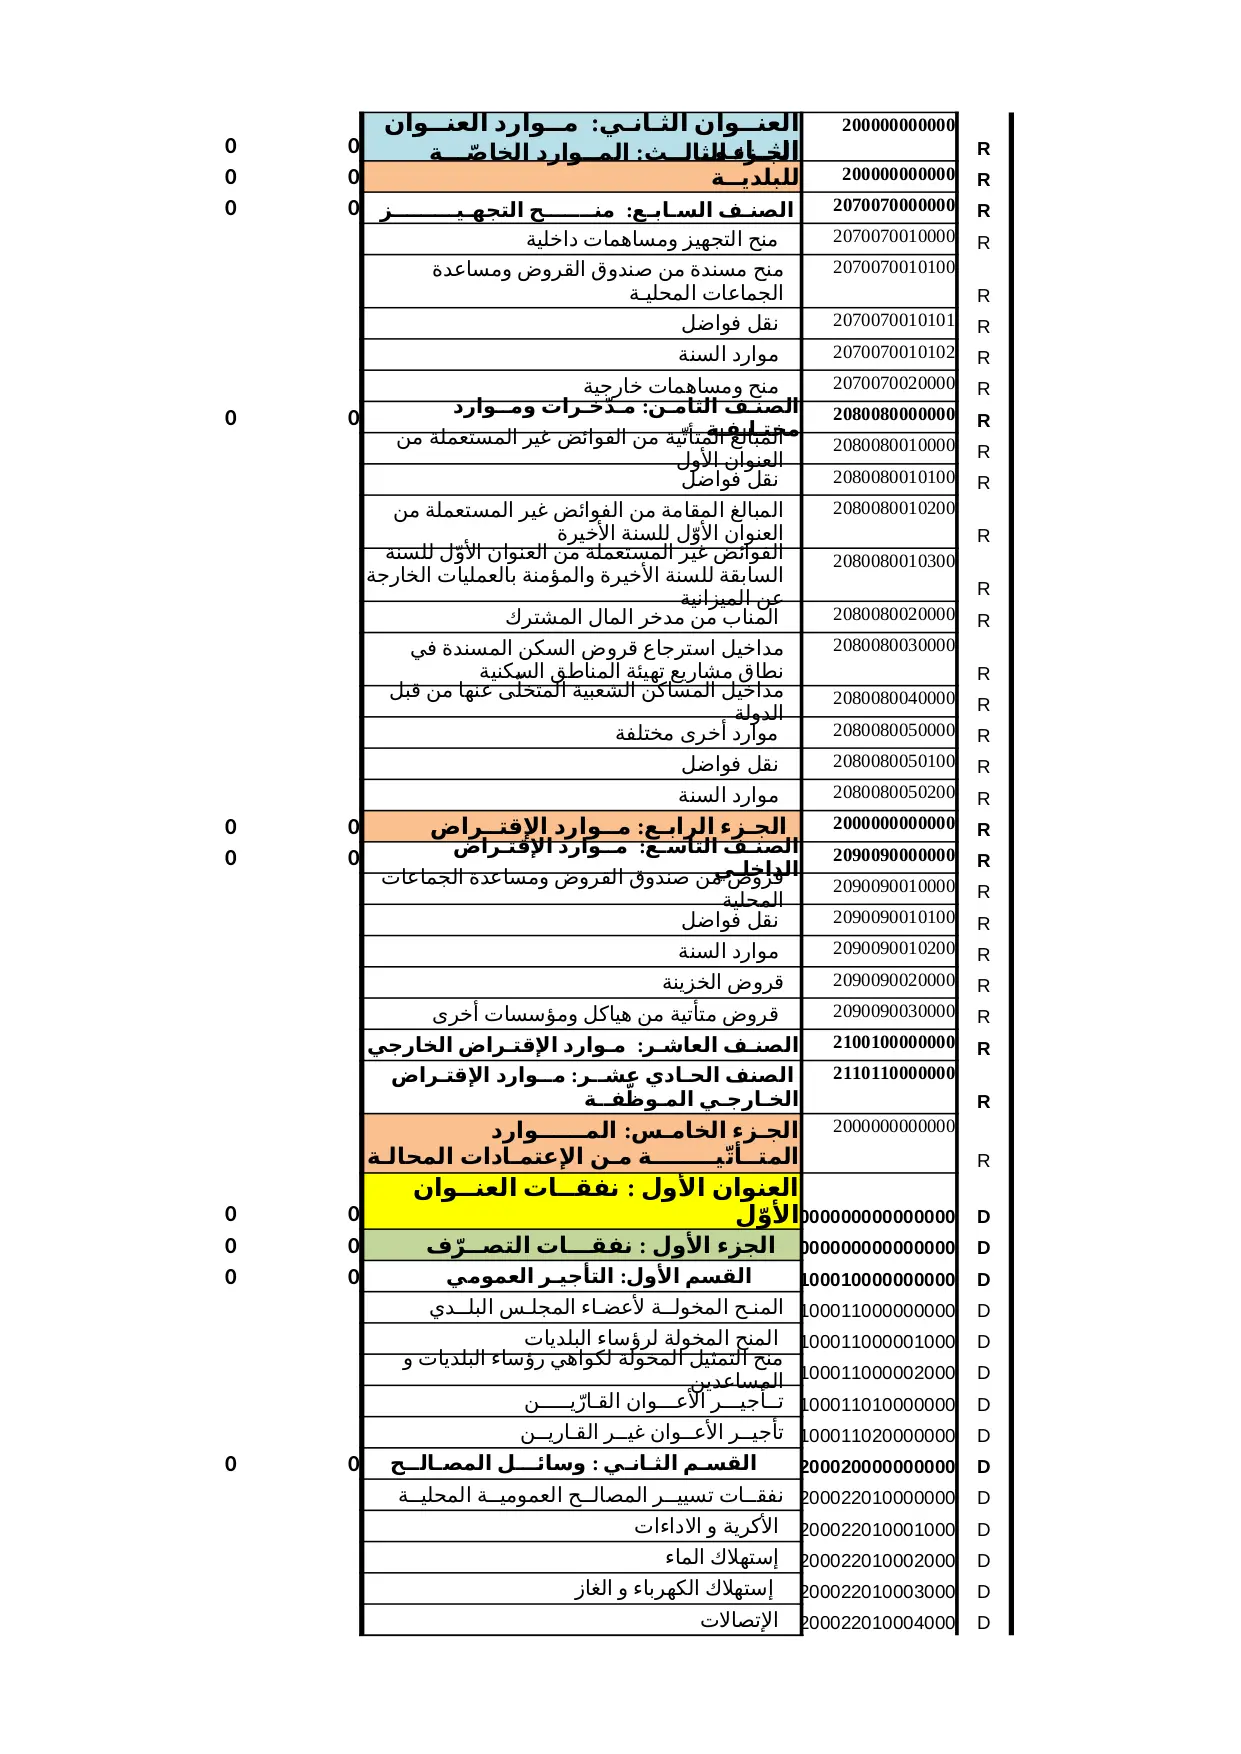 R 200000000000 العنــوان الثـانـي: مــوارد العنــوان الثـانـي 0 0
R 200000000000 الجـزء الثالــث: المــوارد الخاصّـــة للبلديــة 0 0
R 2070070000000 الصنـف السـابـع: منـــــــح التجهـيـــــــــز 0 0
R 2070070010000 منح التجهيز ومساهمات داخلية
R 2070070010100 منح مسندة من صندوق القروض ومساعدة
الجماعات المحليـة
R 2070070010101 نقل فواضل
R 2070070010102 موارد السنة
R 2070070020000 منح ومساهمات خارجية
R 2080080000000 الصنـف الثامـن: مـدّخـرات ومــوارد
مختـلـفـة 0 0
R 2080080010000 المبالغ المتأتّية من الفوائض غير المستعملة من
العنوان الأول
R 2080080010100 نقل فواضل
R 2080080010200 المبالغ المقامة من الفوائض غير المستعملة من
العنوان الأوّل للسنة الأخيرة
R 2080080010300 الفوائض غير المستعملة من العنوان الأوّل للسنة
السابقة للسنة الأخيرة والمؤمنة بالعمليات الخارجة
عن الميزانية
R 2080080020000 المناب من مدخر المال المشترك
R 2080080030000 مداخيل استرجاع قروض السكن المسندة في
نطاق مشاريع تهيئة المناطق السكنية
R 2080080040000 مداخيل المساكن الشعبية المتخلّى عنها من قبل
الدولة
R 2080080050000 موارد أخرى مختلفة
R 2080080050100 نقل فواضل
R 2080080050200 موارد السنة
R 2000000000000 الجـزء الرابـع: مــوارد الإقتــراض 0 0
R 2090090000000 الصنـف التاسـع: مــوارد الإقتـراض
الداخلـي 0 0
R 2090090010000 قروض من صندوق القروض ومساعدة الجماعات
المحلية
R 2090090010100 نقل فواضل
R 2090090010200 موارد السنة
R 2090090020000 قروض الخزينة
R 2090090030000 قروض متأتية من هياكل ومؤسسات أخرى
R 2100100000000 الصنـف العاشـر: مـوارد الإقتـراض الخارجي
R 2110110000000 الصنف الحـادي عشــر: مــوارد الإقتـراض
الخـارجـي المـوظّفــة
R 2000000000000 الجـزء الخامـس: المـــــوارد
المتــأتّيـــــــــة مـن الإعتمـادات المحالـة
D 000000000000000 العنوان الأول : نفقــات العنــوان
الأوّل 0 0
D 000000000000000 الجزء الأول : نفقـــات التصــرّف 0 0
D 100010000000000 القسم الأول: التأجيـر العمومي 0 0
D 100011000000000 المنـح المخولــة لأعضـاء المجلـس البلــدي
D 100011000001000 المنح المخولة لرؤساء البلديات
D 100011000002000 منح التمثيل المخولة لكواهي رؤساء البلديات و
المساعدين
D 100011010000000 تــأجيـــر الأعـــوان القـارّيـــــن
D 100011020000000 تأجيــر الأعــوان غيــر القـاريــن
D 200020000000000 القسـم الثـانـي : وسائـــل المصـالــح 0 0
D 200022010000000 نفقــات تسييــر المصالــح العموميــة المحليــة
D 200022010001000 الأكرية و الاداءات
D 200022010002000 إستهلاك الماء
D 200022010003000 إستهلاك الكهرباء و الغاز
D 200022010004000 الإتصالات